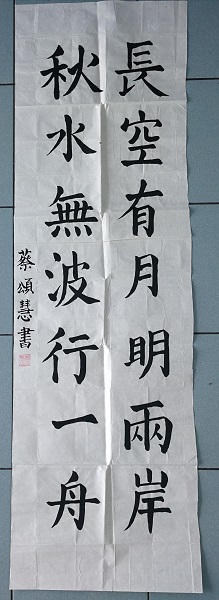 長空有月明兩岸
秋水無波行一舟
蔡頌慧書